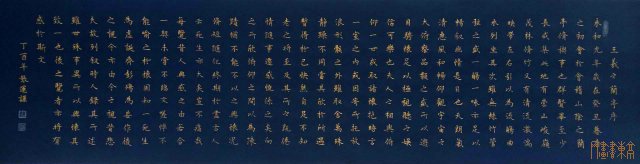 王羲之蘭亭序
永和九年歲在癸丑暮春
之初會於會稽山陰之蘭
亭脩禊事也群賢畢至少
長咸集此地有崇山峻嶺
茂林脩竹又有清流激湍
映帶左右引以為流觴曲
水列坐其次雖無絲竹管
弦之盛一觴一詠亦足以
暢敘幽情是日也天朗氣
清惠風和暢仰觀宇宙之
大俯察品類之盛所以遊
目騁懷足以極視聽之娛
信可樂也夫人之相與俯
仰一世或取諸懷抱晤言
一室之內或因寄所託放
浪形骸之外雖取舍萬殊
靜躁不同當其欣於所遇
暫得於己快然自足不知
老之將至及其所之既倦
情隨事遷感慨係之矣向
之所欣俛仰之間以為陳
跡猶不能不以之興懷況
脩短隨化終期於盡古人
云死生亦大矣豈不痛哉
每覽昔人興感之由若合
一契未嘗不臨文嗟悼不
能喻之於懷固知一死生
為虛誕齊彭殤為妄作後
之視今亦由今之視昔悲
夫故列敘時人錄其所述
雖世殊事異所以興懷其
致一也後之覽者亦將有
感於斯文
丁酉年